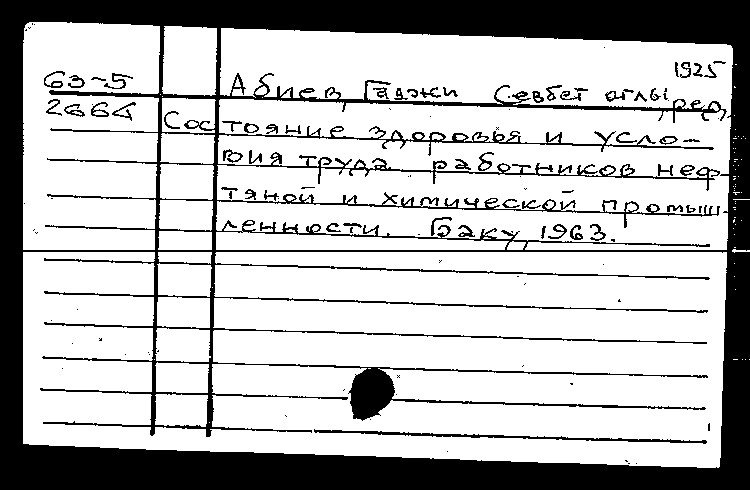 1925
63-5 Абиев, Гаджи Севбет оглы, ред.
2664 Состояние здоровья и усло-
вия труда работников неф-
тяной и химической промыш-
ленности. Баку, 1963.